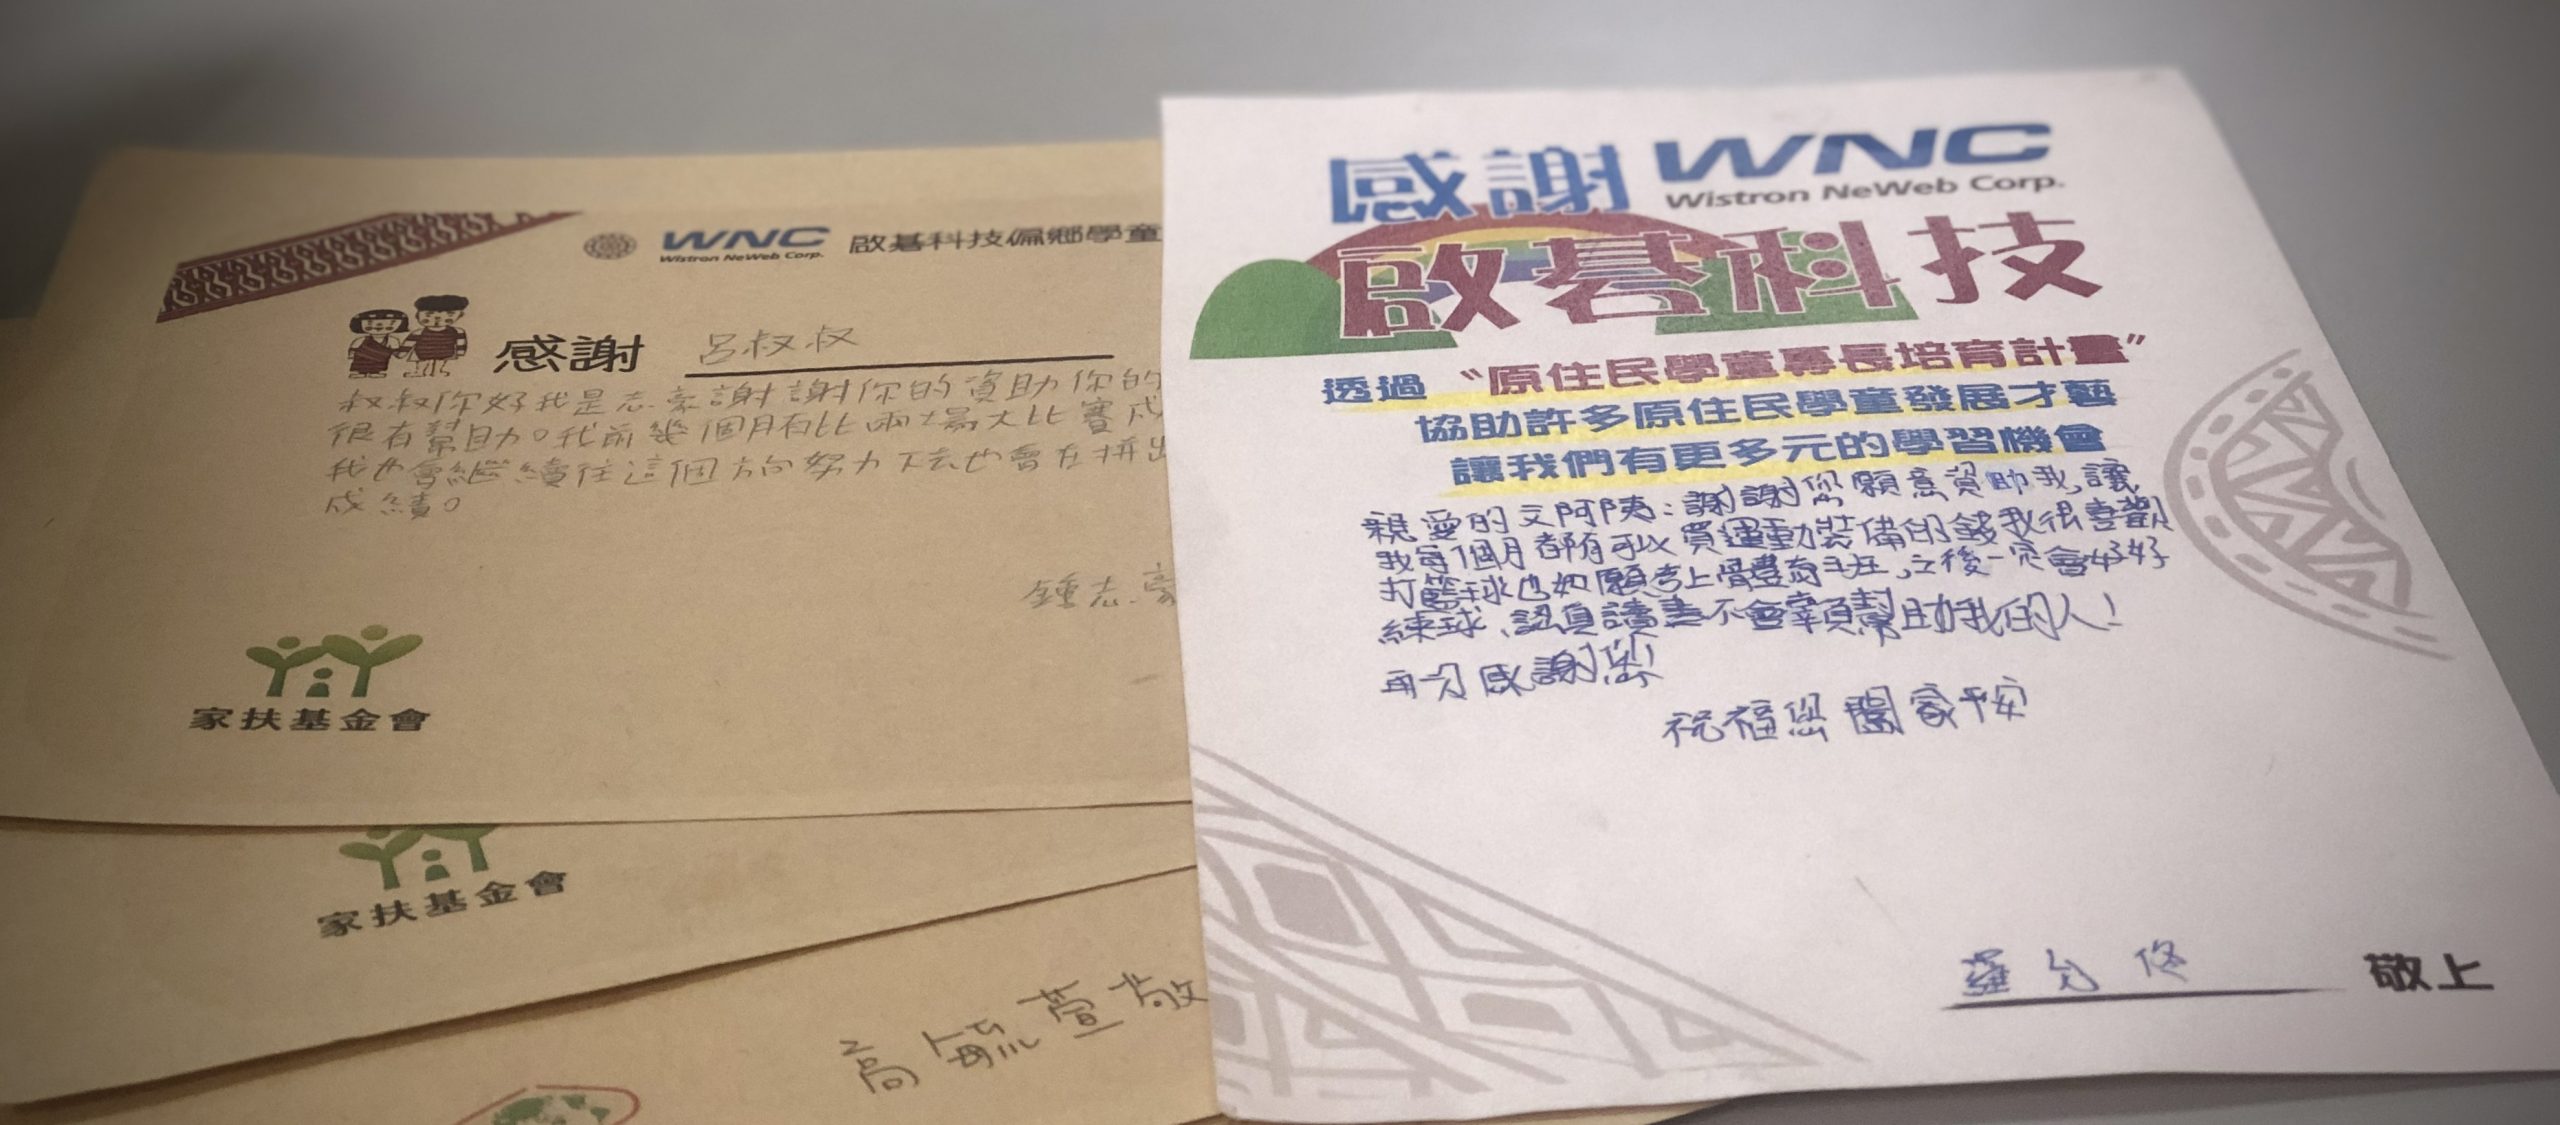 WNC
Wistron NeWeb Corp.
啟碁科技偏鄉學童
感謝 呂叔叔
叔叔你好我是志豪謝謝你的資助你的
很有幫助。我前幾個月有比兩場大比賽成
我也會繼續往這個方向努力下去也會在拼出
成績。
鍾志豪
家扶基金會
家扶基金會
高毓萱敬
感謝 WNC
Wistron NeWeb Corp.
啟碁科技
透過“原住民學童專長培育計畫”
協助許多原住民學童發展才藝
讓我們有更多元的學習機會
親愛的文阿姨:謝謝您願意資助我,讓
我每個月都有可以買運動裝備的錢我很喜歡
打籃球也如願考上體育班,之後一定會好好
練球、認真讀書不會辜負幫助我的人!
再次感謝您!
祝福您闔家平安
羅 敬上